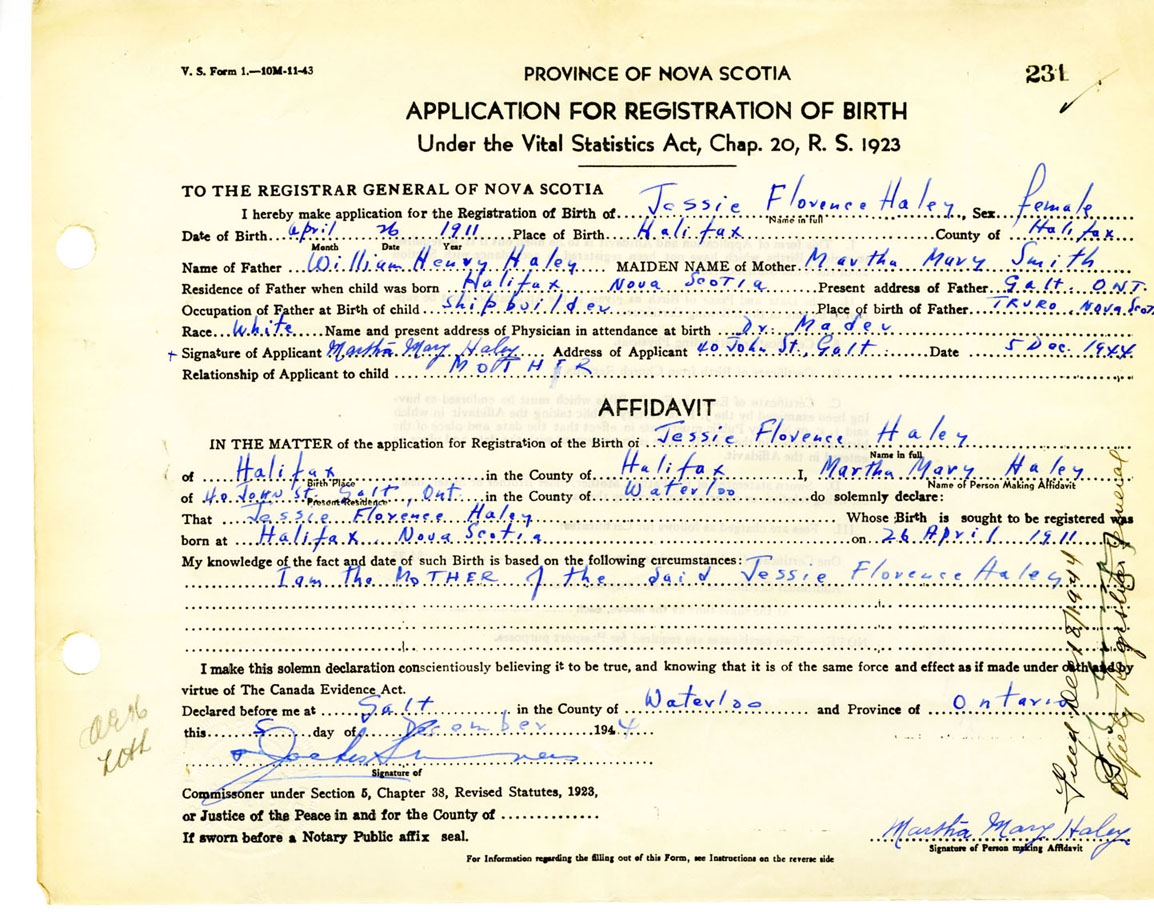 V. S. Form 1.—10M-11-43
PROVINCE OF NOVA SCOTIA
231
APPLICATION FOR REGISTRATION OF BIRTH
Under the Vital Statistics Act, Chap. 20, R. S. 1923
TO THE REGISTRAR GENERAL OF NOVA SCOTIA
I hereby make application for the Registration of Birth of Jessie Florence Haley, Sex female
Name in full
Date of Birth April 26 1911 Place of Birth Halifax County of Halifax
Month Date Year
Name of Father William Henry Haley MAIDEN NAME of Mother Martha Mary Smith
Residence of Father when child was born Halifax Nova Scotia Present address of Father Galt. ONT.
Occupation of Father at Birth of child Shipbuilder Place of birth of Father TRURO, Nova Scot
Race White Name and present address of Physician in attendance at birth Dr. Mader
+ Signature of Applicant Martha Mary Haley Address of Applicant 40 John St, Galt Date 5 Dec. 1944
Relationship of Applicant to child MOTHER
AFFIDAVIT
IN THE MATTER of the application for Registration of the Birth of Jessie Florence Haley
Name in full
of Halifax in the County of Halifax I, Martha Mary Haley
Birth Place Name of Person Making Affidavit
of 40 John St. Galt, Ont in the County of Waterloo do solemnly declare:
Present Residence
That Jessie Florence Haley Whose Birth is sought to be registered was
born at Halifax, Nova Scotia on 26 April 1911
My knowledge of the fact and date of such Birth is based on the following circumstances:
I am the MOTHER of the said Jessie Florence Haley
I make this solemn declaration conscientiously believing it to be true, and knowing that it is of the same force and effect as if made under oath and by
virtue of The Canada Evidence Act.
Declared before me at Galt in the County of Waterloo and Province of Ontario
this 5 day of December 1944
Signature of
Commissoner under Section 5, Chapter 38, Revised Statutes, 1923,
or Justice of the Peace in and for the County of
If sworn before a Notary Public affix seal.
Martha Mary Haley
Signature of Person making Affidavit
For Information regarding the filling out of this Form, see Instructions on the reverse side
Filed Dec 18/1944
Deputy Registrar General